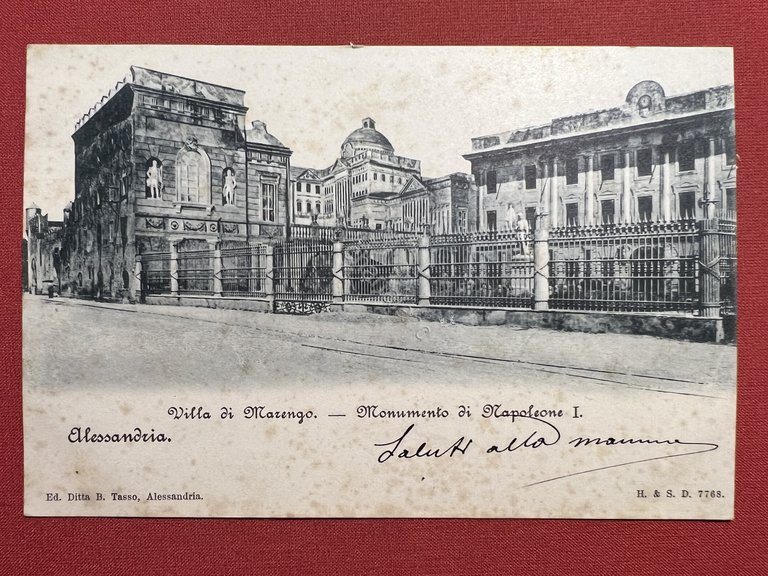 Villa di Marengo. — Monumento di Napoleone I.
Alessandria.
Saluti alla mamma
Ed. Ditta B. Tasso, Alessandria.
H. & S. D. 7768.